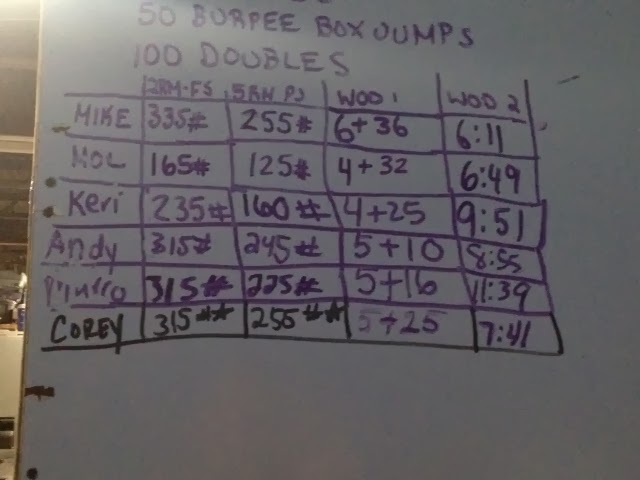 50 BURPEE BOX JUMPS
100 DOUBLES
2RM-FS 5RM PJ WOD 1 WOD 2
MIKE 335# 255# 6+36 6:11
MOL 165# 125# 4+32 6:49
Keri 235# 160# 4+25 9:51
Andy 315# 245# 5+10 8:55
315# 225# 5+16 11:39
COREY 315## 255## 5+25 7:41